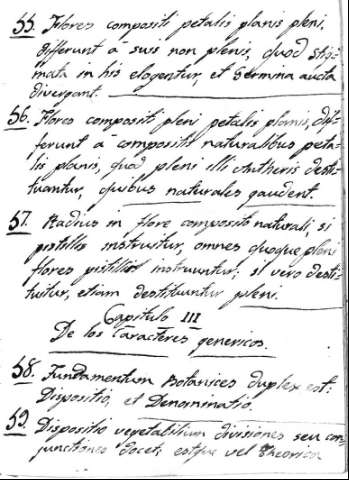 55. Flores compositi petalis planis pleni,
differunt á suis non plenis, quod stig-
mata in his elogentur, et Germina aucta
divergant.
56. Flores compositi pleni petalis planis, dif-
ferunt á compositis naturalibus peta-
lis planis, quod pleni illi Antheris desti-
tuantur, quibus naturales gaudent.
57. Radius in flore composito naturali, si
pistillis instruitur, omnes quoque pleni
flores pistillis instruuntur; si vero desti-
tuitur, etiam destituuntur pleni.
Capitulo III
De los Caracteres genericos.
58. Fundamentum Botanices duplex est:
Dispositio, et Denominatio.
59. Dispositio vegetabilium divisiones seu con-
junctiones docet; estque vel Theorica